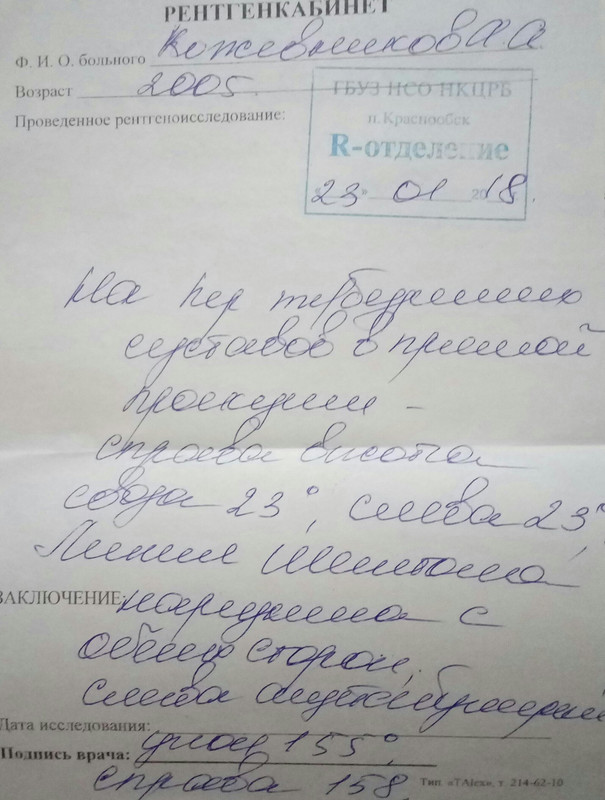 РЕНТГЕНКАБИНЕТ
Ф. И. О. больного Кожевников А. А.
Возраст 2005.
ГБУЗ НСО НКЦРБ
Проведенное рентгеноисследование:
п. Краснообск
R-отделение
«23» 01 2018.
На тазобедренных
суставов в прямой
проекции -
справа высота
свода 23°, слева 23°,
Линия Шентона
ЗАКЛЮЧЕНИЕ: нарушена с
обеих сторон,
слева
Дата исследования:
угол 155°,
Подпись врача:
справа 158
Тип. «TAlex», т. 214-62-10